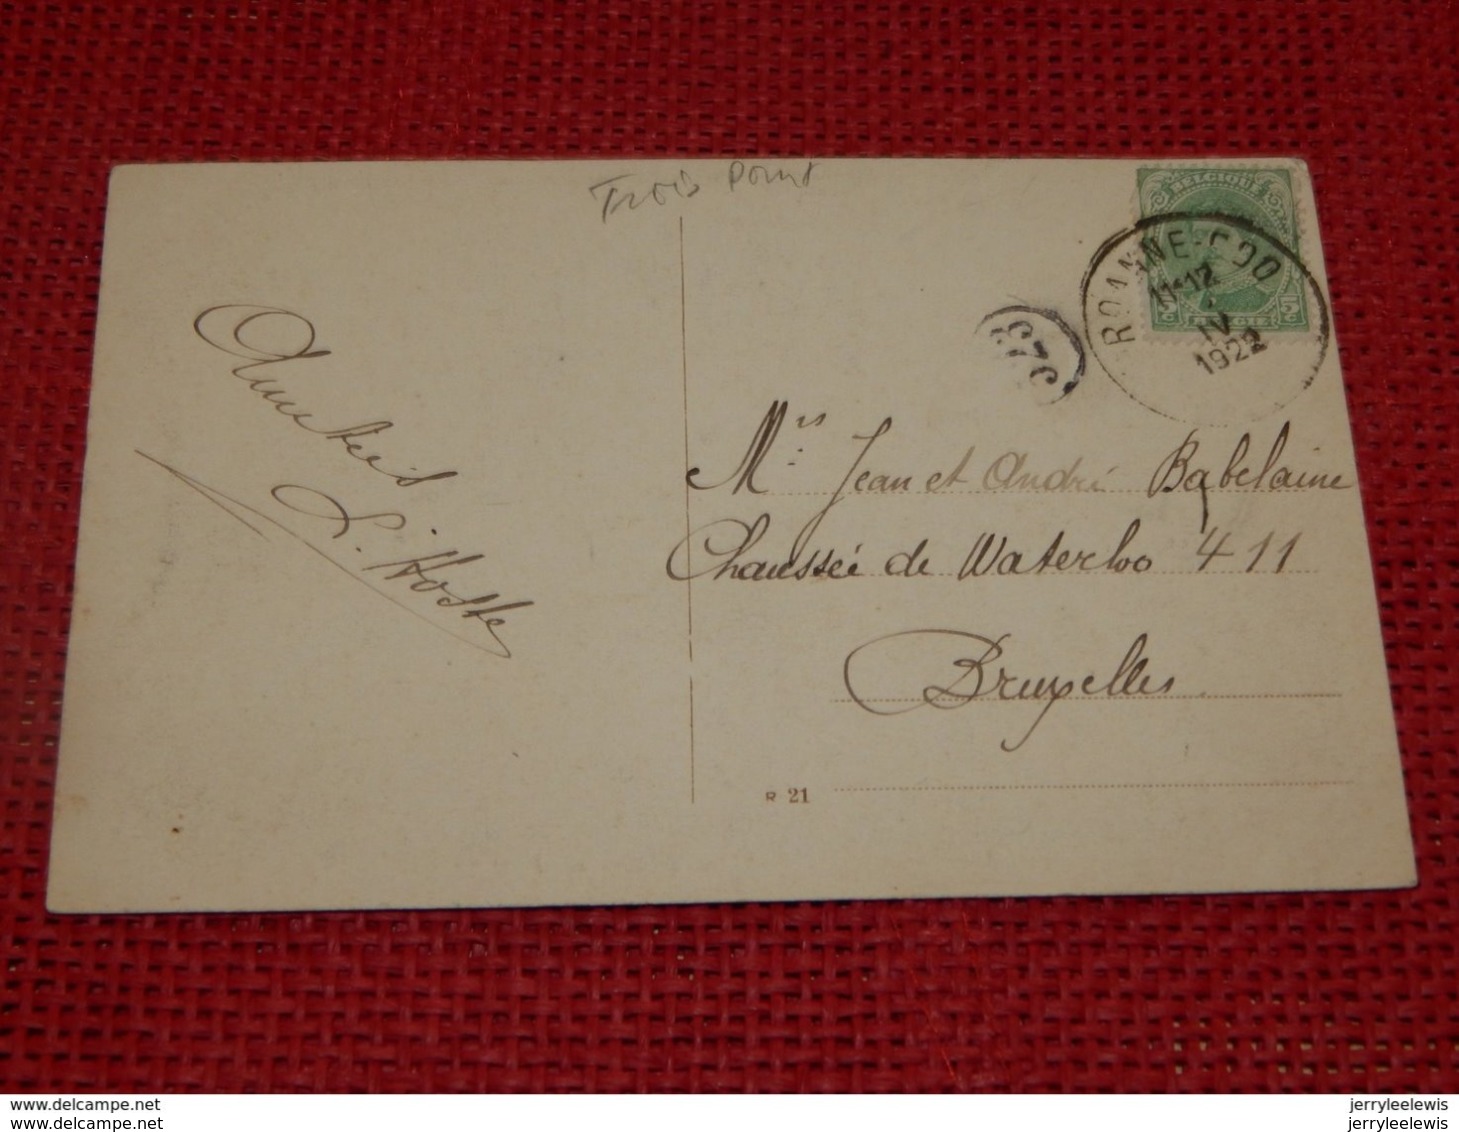 Trois Point
BELGIQUE
ROANNE-COO
11-12
IV
1922
5c 5c
BELGIË
Amitiés
L. Hoste
Mrs Jean et André Babelaine
Chaussée de Waterloo 411
Bruxelles.
R 21
www.delcampe.net
www.delcampe.net
jerryleelewis
jerryleelewis